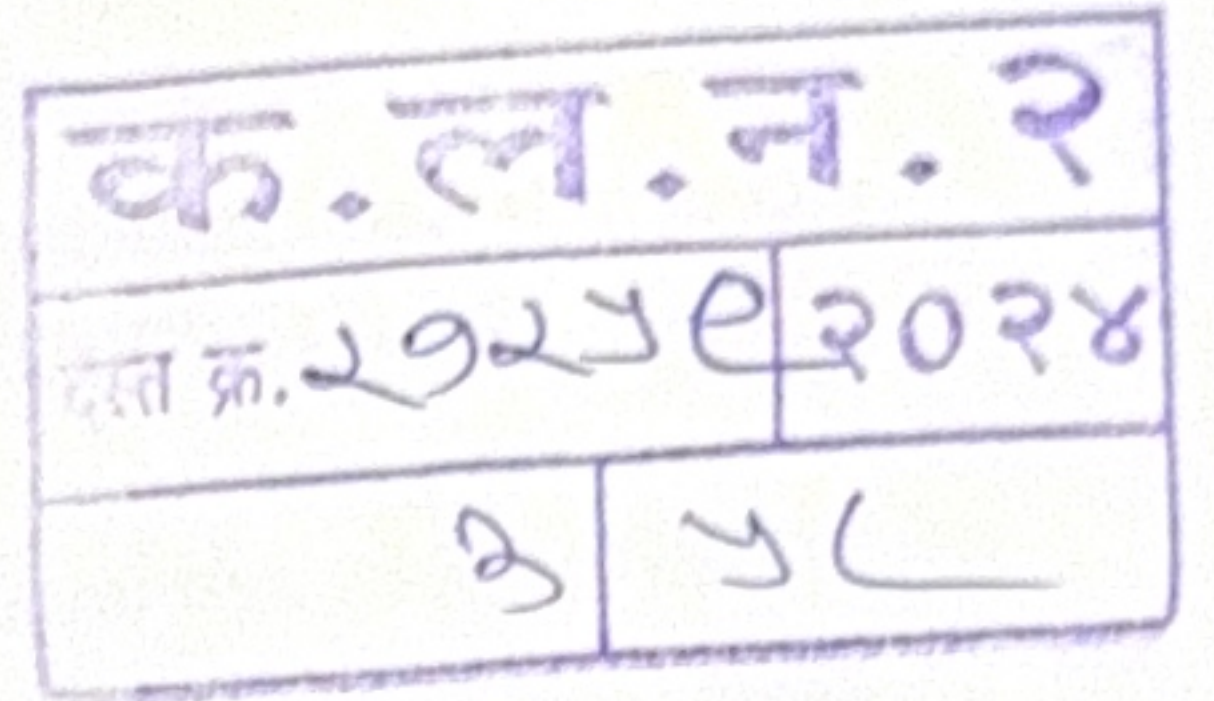 क.ल.न.२
दस्त क्र. २७२५९ २०२४
३ ५८